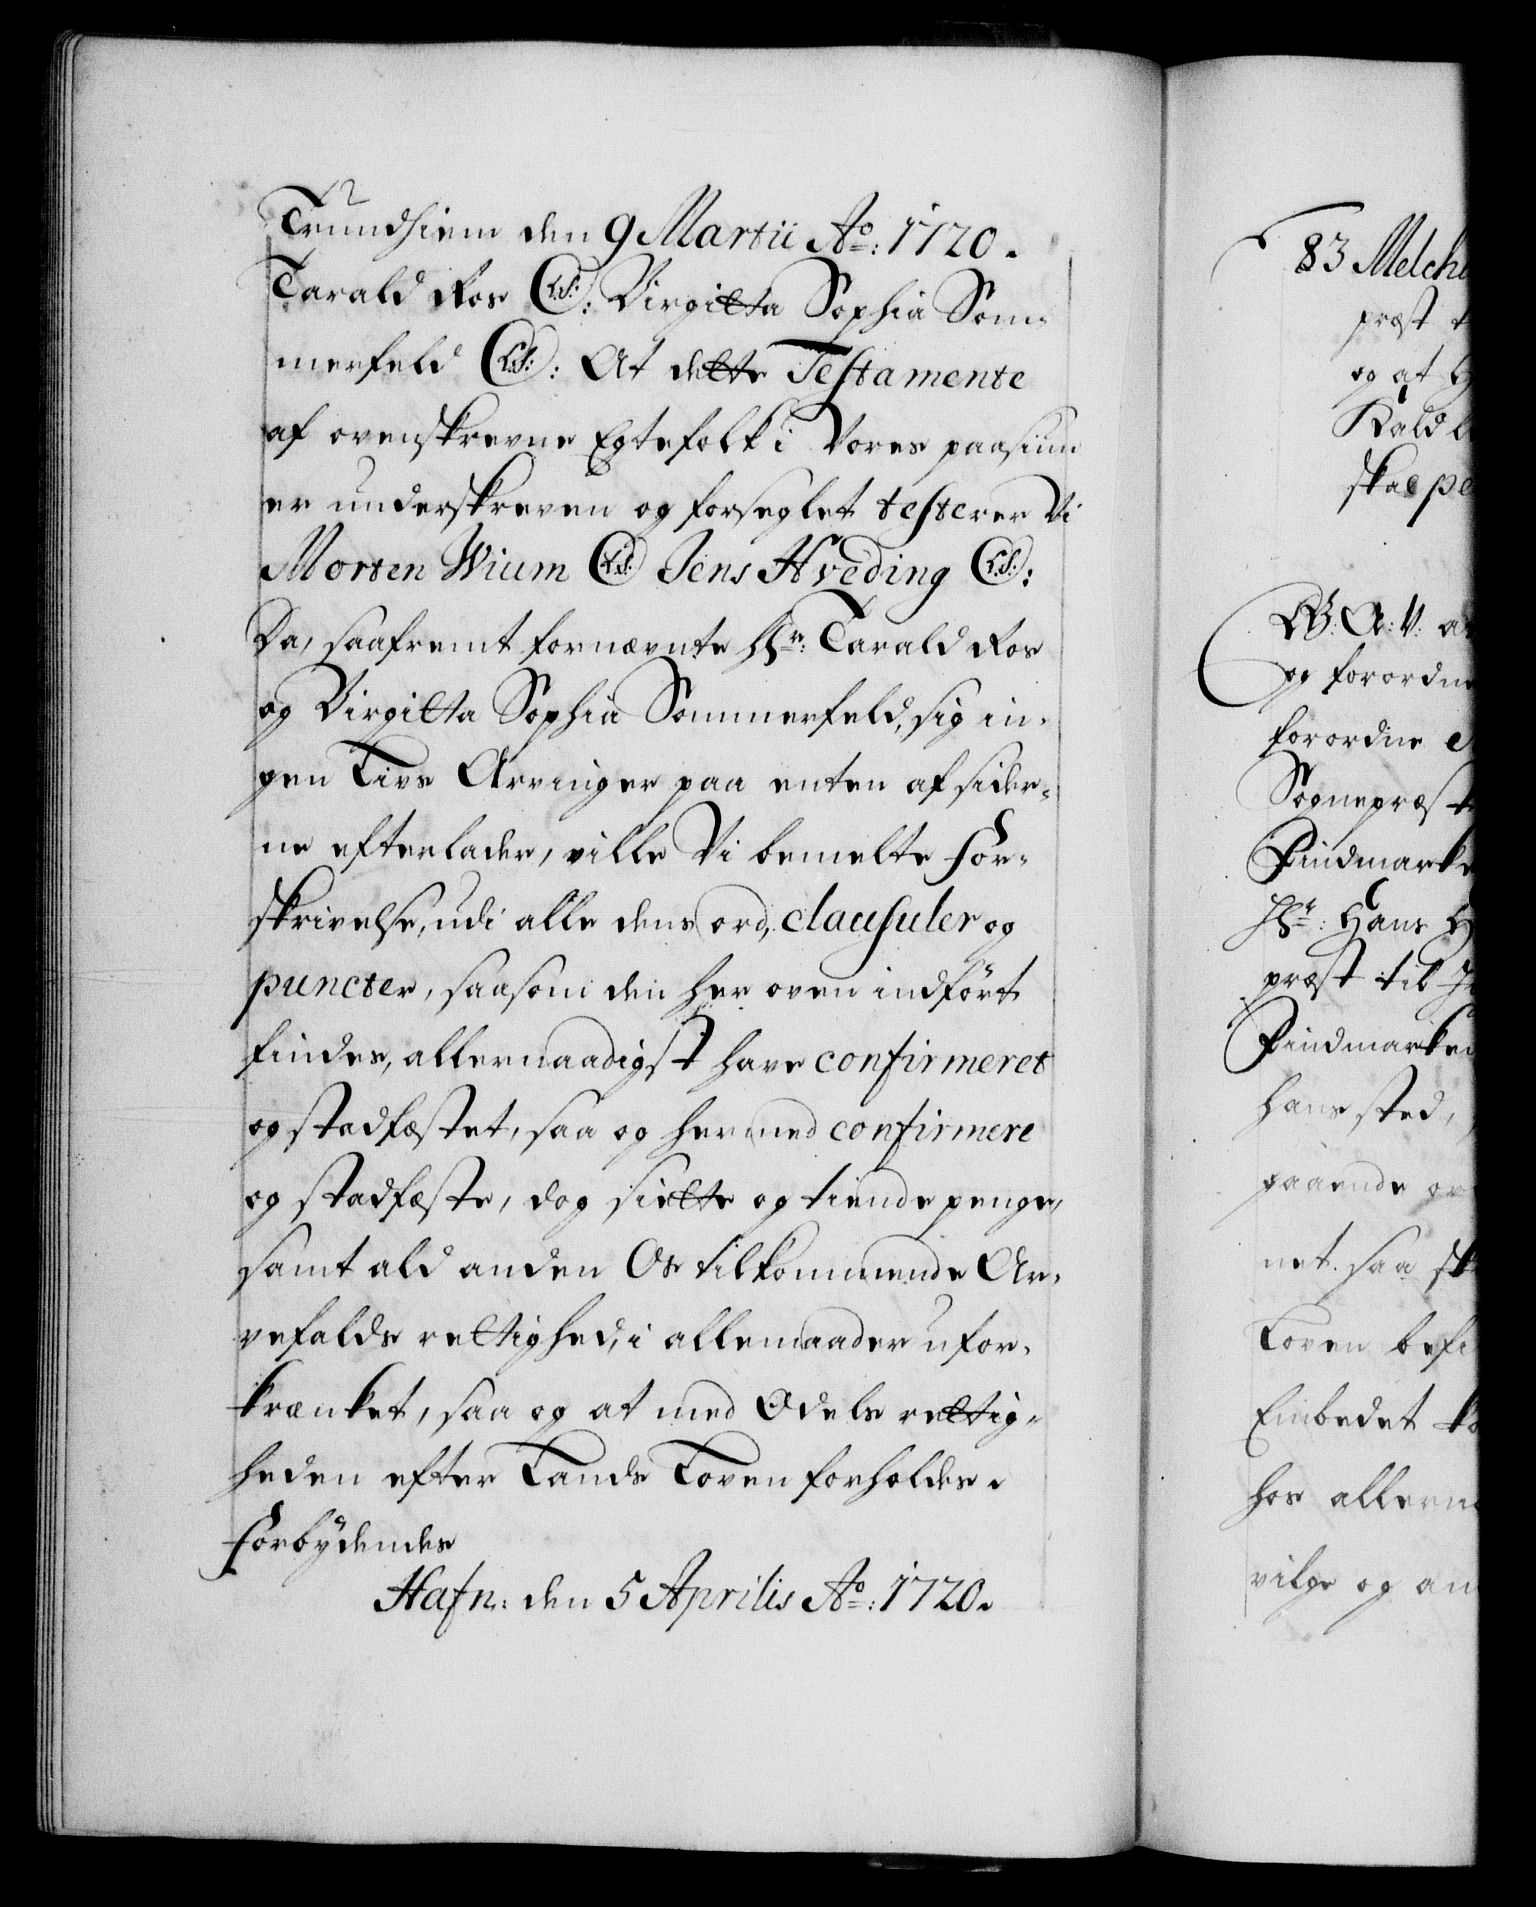 Trundhiem den 9 Martii Ao: 1720.
Tarald Ros (L.S.): Birgitta Sophia Som-
merfeld (L.S.): At dette Testamente
af ovenskrevne Egtefolk i Vores paasiun
er underskreven og forseglet testerer Vi
Morten Wium (L.S.) Jens Hveding (L.S.):
Da, saafremt fornævnte Hr: Tarald Ros
og Birgitta Sophia Sommerfeld, sig in-
gen Livs Arvinger paa enten af sider-
ne efterlader, ville Vi bemelte for-
skrivelse, udi alle dens ord, clausuler og
puncter, saasom den her oven indført
findes, allernaadigst have confirmeret
og stadfæstet, saa og hermed confirmere
og stadfæste, dog siette og tiende penge,
samt ald anden Os tilkommende Ar-
vefalds rettighed, i allemaader ufor-
krænket, saa og at med Odels rettig-
heden efter Lands Loven forholdes.
Forbydendes
Hafn: den 5 Aprilis Ao: 1720.
83 Melch
præst
og at
Kald
skal
og forordne
forordne
Sognepræst
Findmarke
Hr: Hans
præst til
Findmarken
hans sted,
gaaende
net. saa
Loven befi
Embedet
hos allern
vilge og an